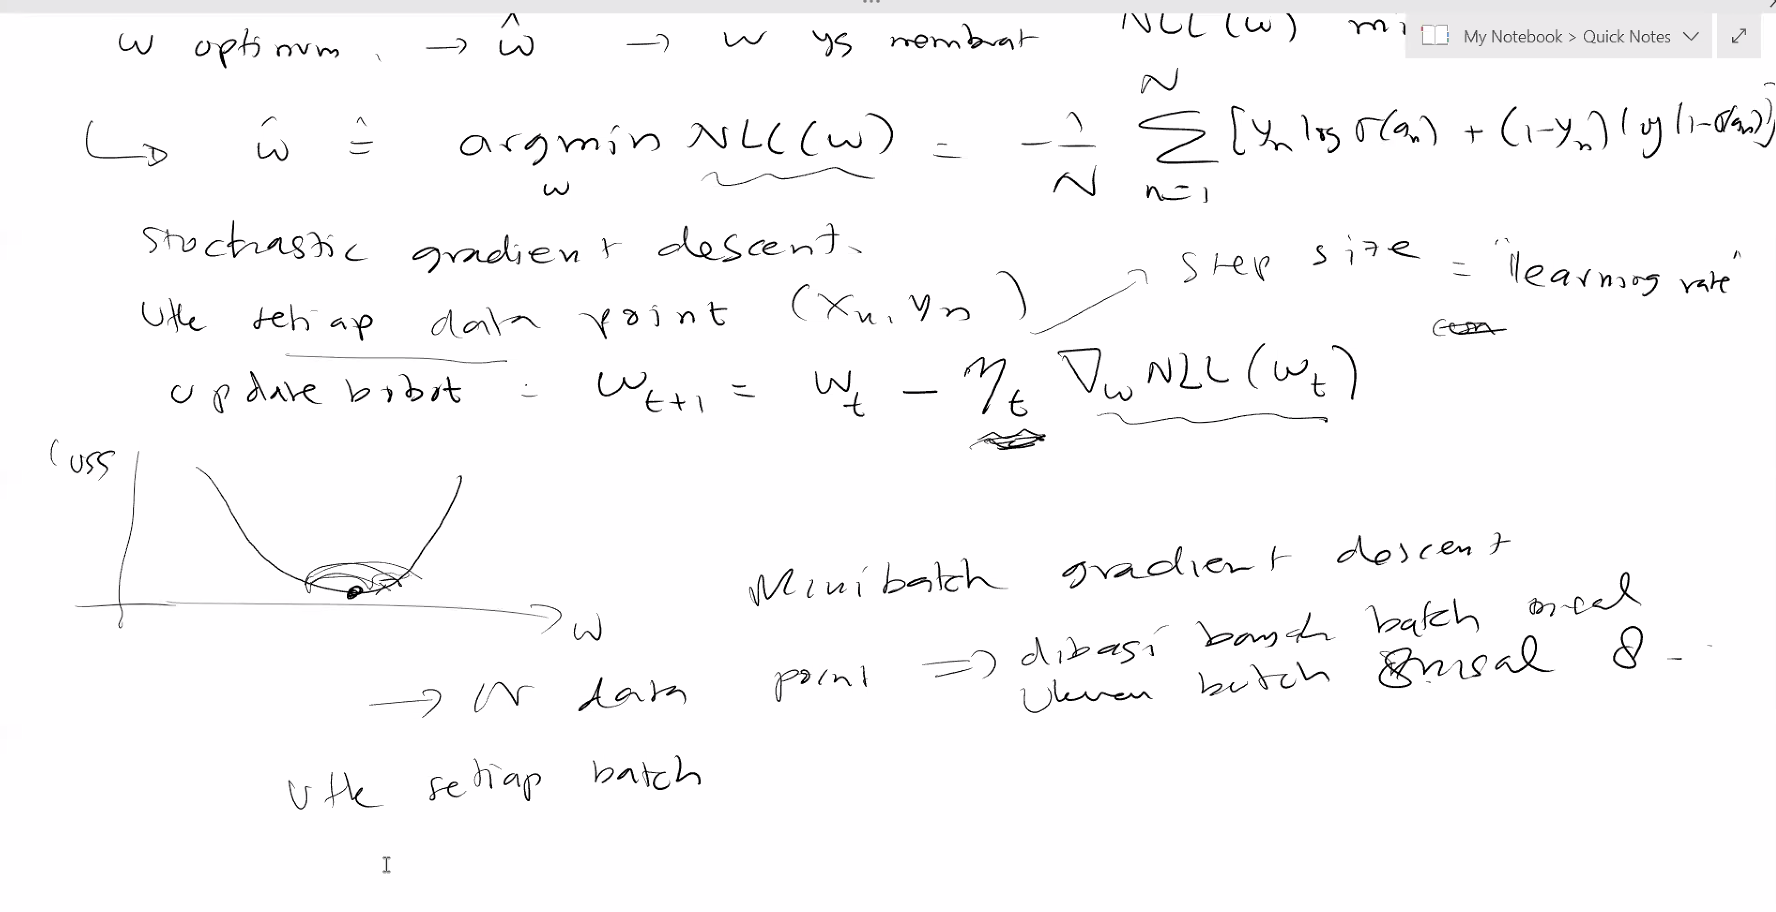 w optimum, → ŵ → w yg membuat NLL(w) mi
My Notebook > Quick Notes
↳ ŵ ≙ argmin_w NLL(w) = -1/N Σ_{n=1}^{N} [y_n log σ(a_n) + (1-y_n) log(1-σ(a_n))]
stochastic gradient descent.
utk setiap data point (x_n, y_n) → step size = "learning rate"
update bobot = w_{t+1} = w_t - η_t ∇_w NLL(w_t)
Loss
w
Minibatch gradient descent
→ N data point => dibagi batch misal
Ukuran batch misal 8
utk setiap batch